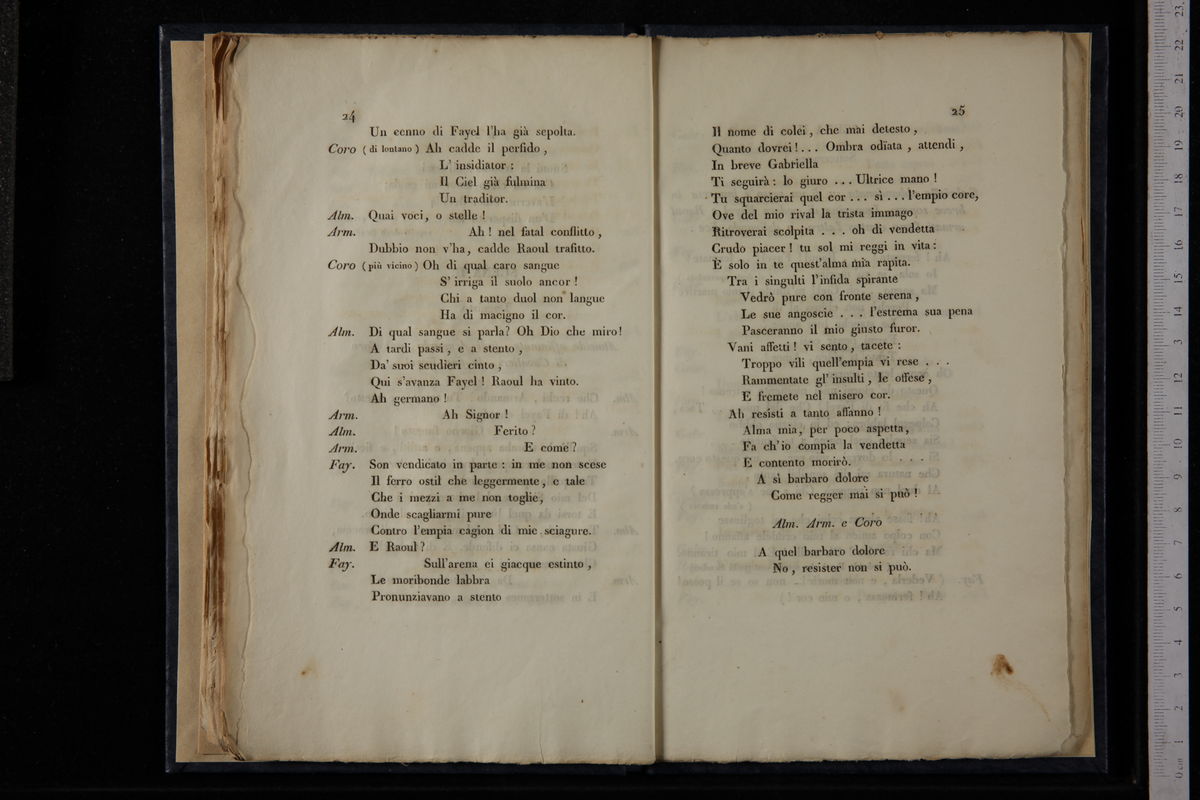 24
Un cenno di Fayel l'ha già sepolta.
Coro ( di lontano ) Ah cadde il perfido ,
L' insidiator :
Il Ciel già fulmina
Un traditor.
Alm. Quai voci, o stelle !
Arm. Ah ! nel fatal conflitto ,
Dubbio non v'ha, cadde Raoul trafitto.
Coro ( più vicino ) Oh di qual caro sangue
S' irriga il suolo ancor !
Chi a tanto duol non langue
Ha di macigno il cor.
Alm. Di qual sangue si parla? Oh Dio che miro!
A tardi passi , e a stento ,
Da' suoi scudieri cinto ,
Qui s'avanza Fayel ! Raoul ha vinto.
Ah germano !
Arm. Ah Signor !
Alm. Ferito ?
Arm. E come ?
Fay. Son vendicato in parte : in me non scese
Il ferro ostil che leggermente, e tale
Che i mezzi a me non toglie,
Onde scagliarmi pure
Contro l'empia cagion di mie sciagure.
Alm. E Raoul ?
Fay. Sull'arena ei giacque estinto ,
Le moribonde labbra
Pronunziavano a stento
25
Il nome di colei , che mai detesto ,
Quanto dovrei ! . . . Ombra odiata , attendi ,
In breve Gabriella
Ti seguirà : lo giuro . . . Ultrice mano !
Tu squarcierai quel cor . . . sì . . . l'empio core,
Ove del mio rival la trista immago
Ritroverai scolpita . . . oh di vendetta
Crudo piacer ! tu sol mi reggi in vita :
È solo in te quest'alma mia rapita.
Tra i singulti l'infida spirante
Vedrò pure con fronte serena ,
Le sue angoscie . . . l'estrema sua pena
Pasceranno il mio giusto furor.
Vani affetti ! vi sento , tacete :
Troppo vili quell'empia vi rese . . .
Rammentate gl' insulti , le offese ,
E fremete nel misero cor.
Ah resisti a tanto affanno !
Alma mia, per poco aspetta,
Fa ch'io compia la vendetta
E contento morirò.
A sì barbaro dolore
Come regger mai si può !
Alm. Arm. e Coro
A quel barbaro dolore
No , resister non si può.